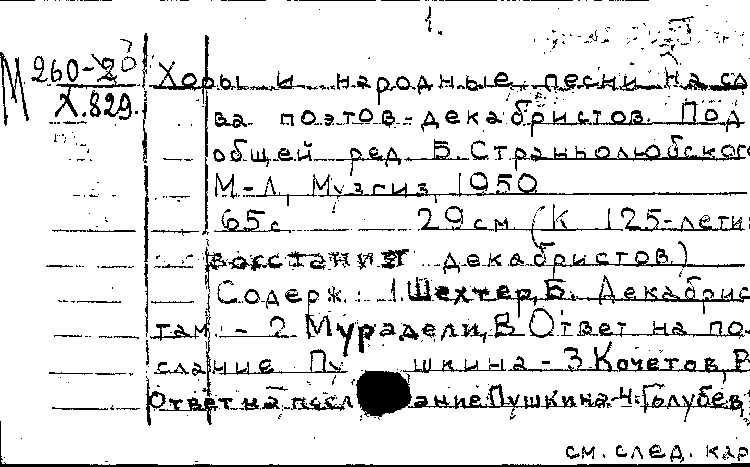 1.
М 260-20
X.829.
Хоры и народные песни на сло
ва поэтов-декабристов. Под
общей ред. Б. Страннолюбского
М-Л, Музгиз, 1950
65с 29см (К 125-лети
восстания декабристов)
Содерж.: 1. Шехтер, Б. Декабрис
там. - 2 Мурадели, В Ответ на по-
слание Пушкина - 3. Кочетов, В
Ответ на послание Пушкина-4. Голубев,
см. след. кар